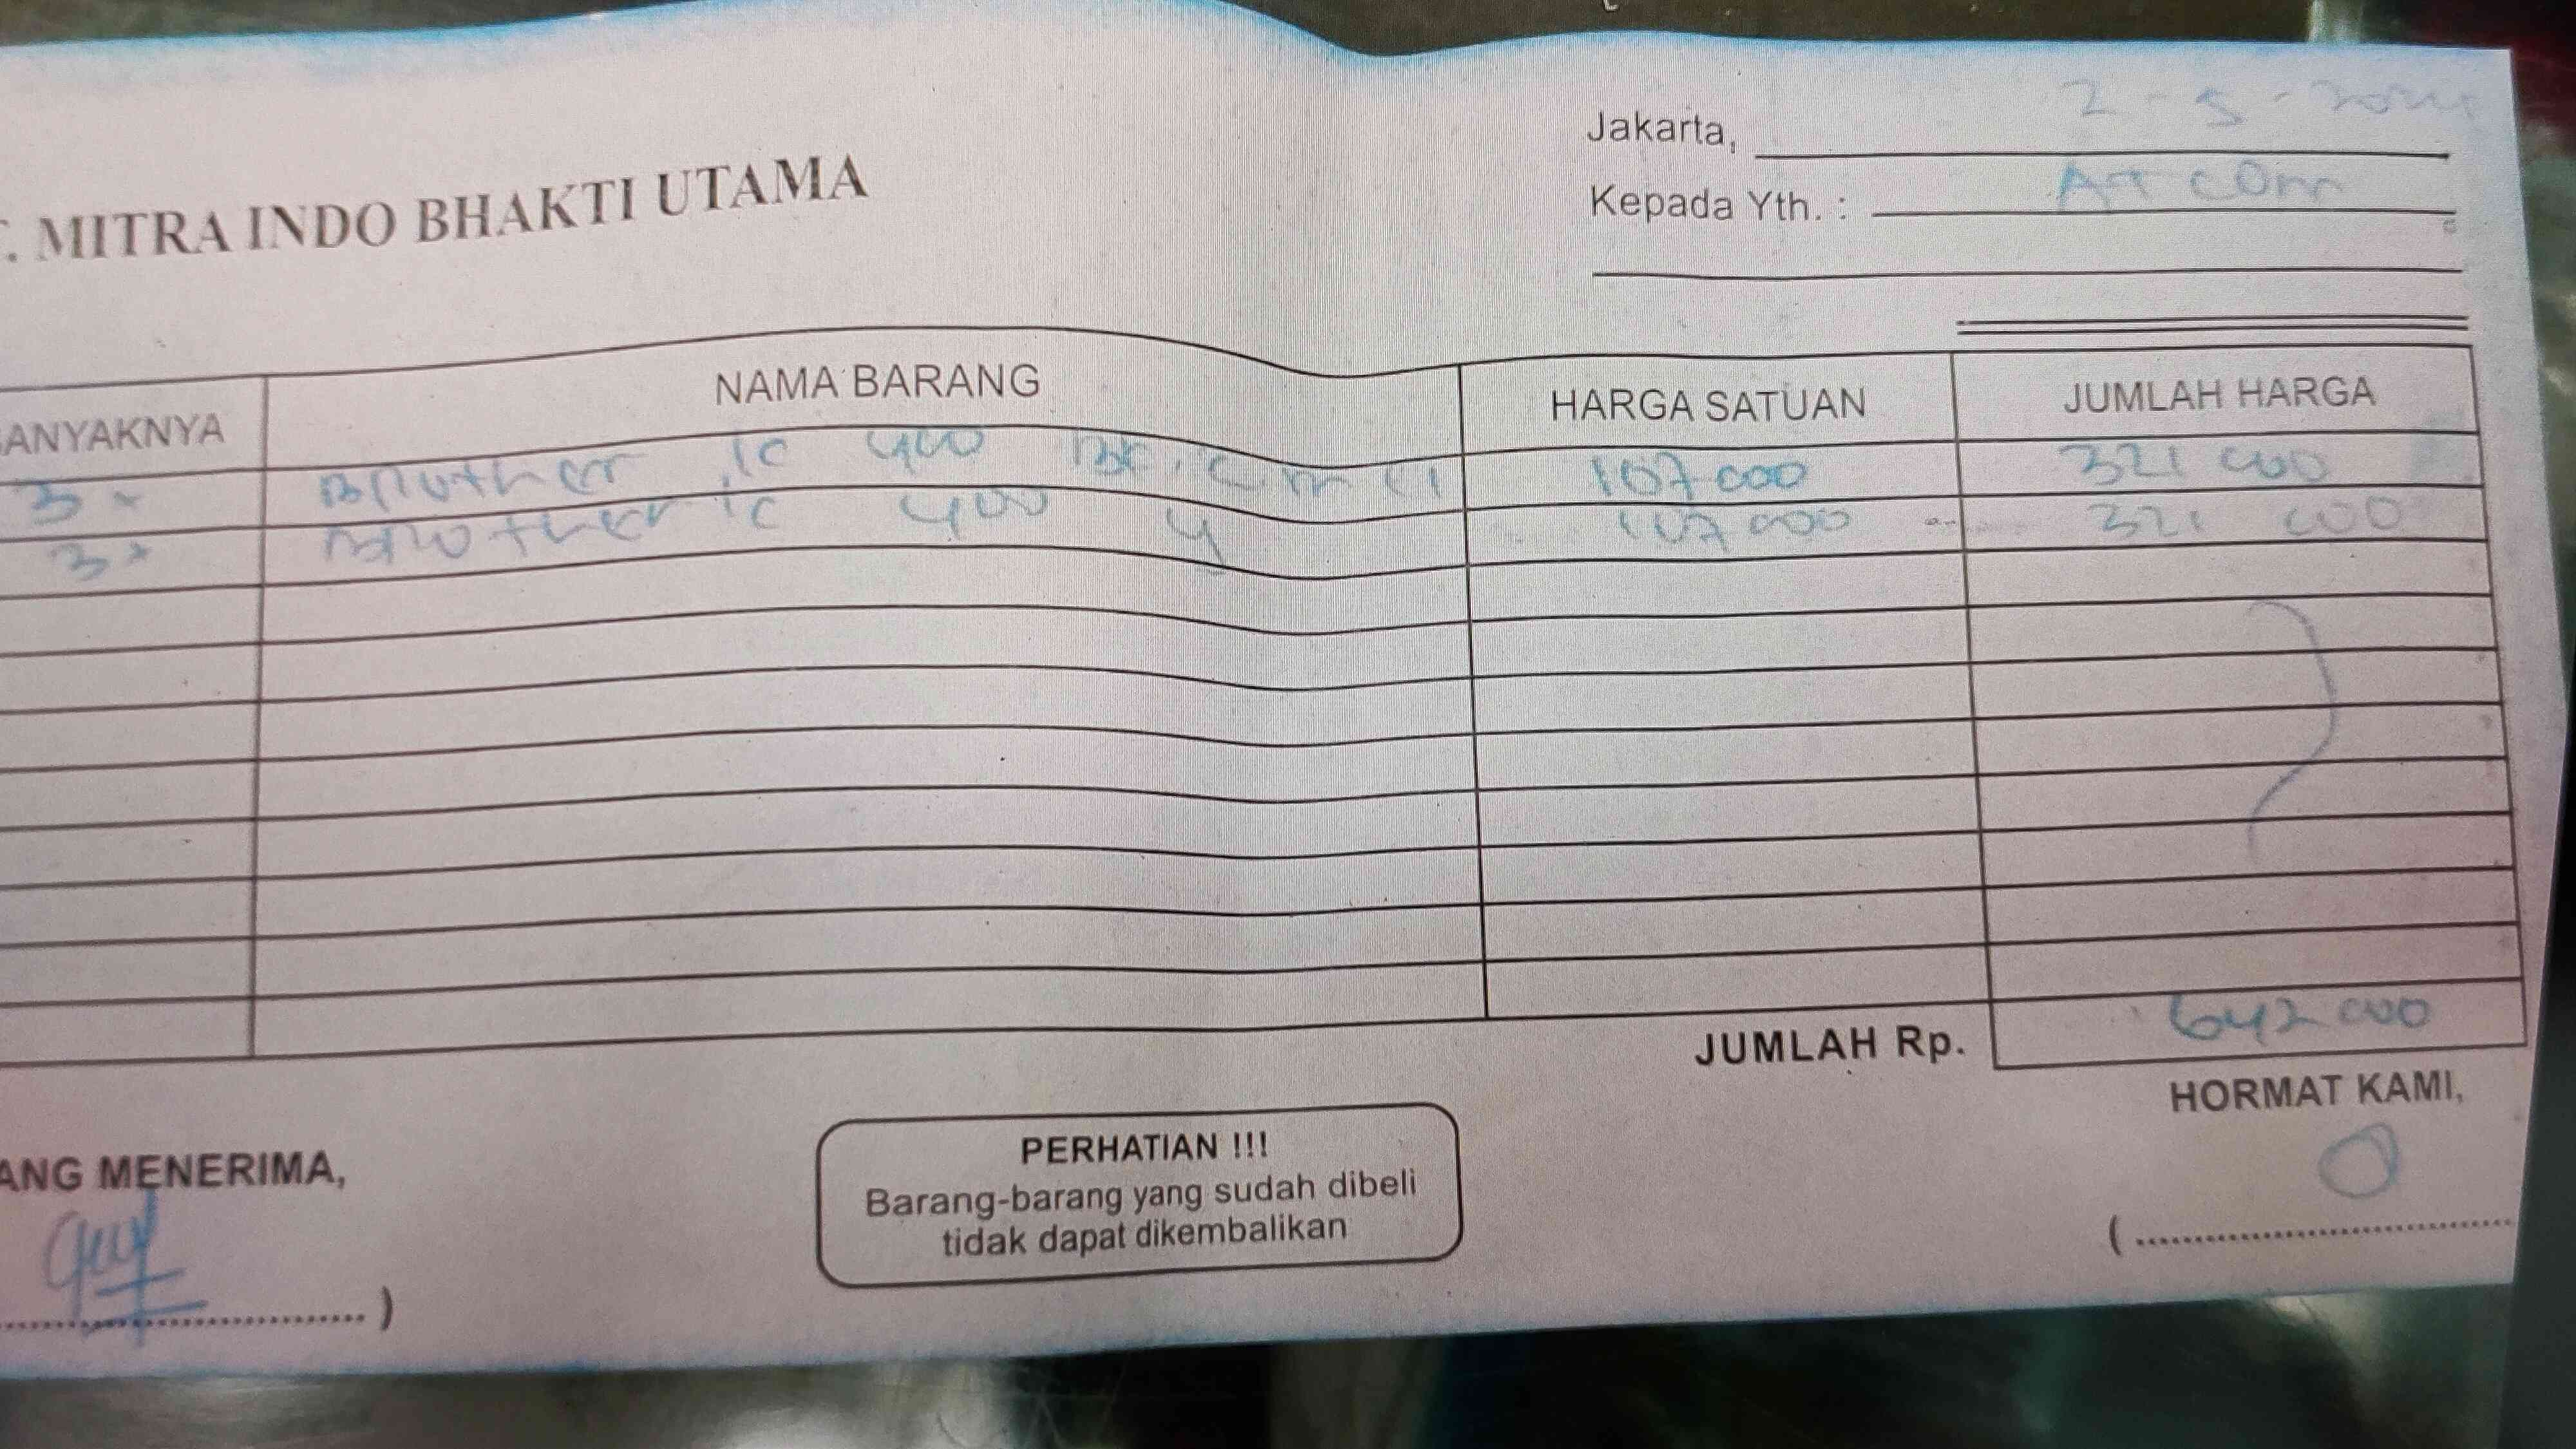 . MITRA INDO BHAKTI UTAMA
Jakarta, 2 - 5 -
Kepada Yth. : com
ANYAKNYA NAMA BARANG HARGA SATUAN JUMLAH HARGA
3 x Brother 400 107 000 321 000
3 x Brother 400 107 000 321 000
JUMLAH Rp. 642 000
ANG MENERIMA,
HORMAT KAMI,
PERHATIAN !!!
Barang-barang yang sudah dibeli
tidak dapat dikembalikan